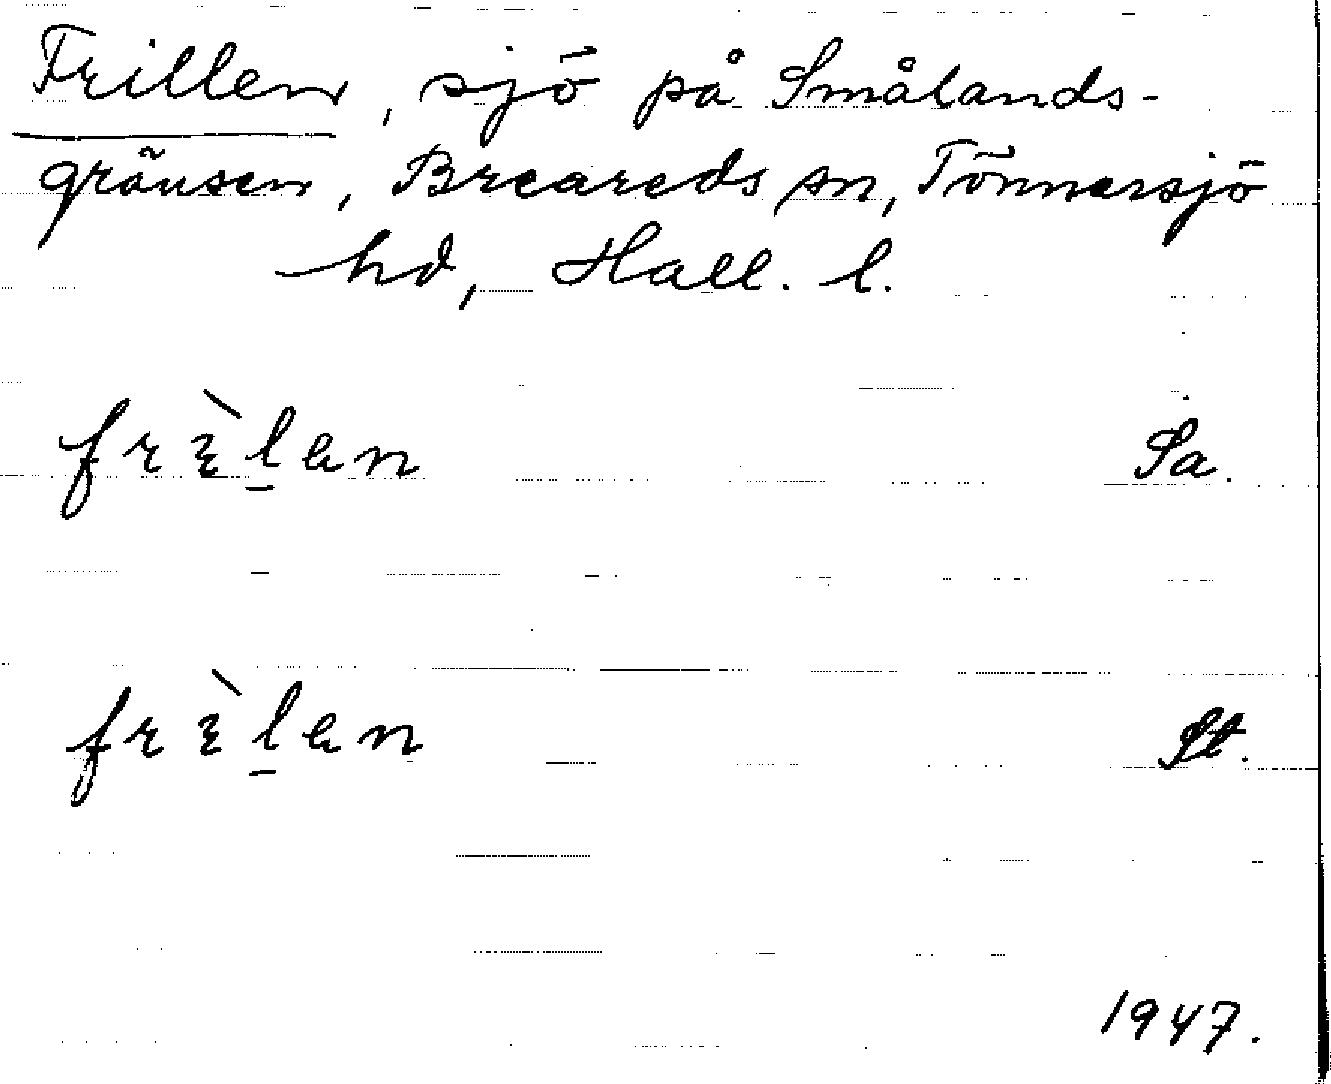 Frillen, sjö på Smålands-
gränsen, Breareds sn, Tönnersjö
hd, Hall. l.
Sa.
St.
1947.